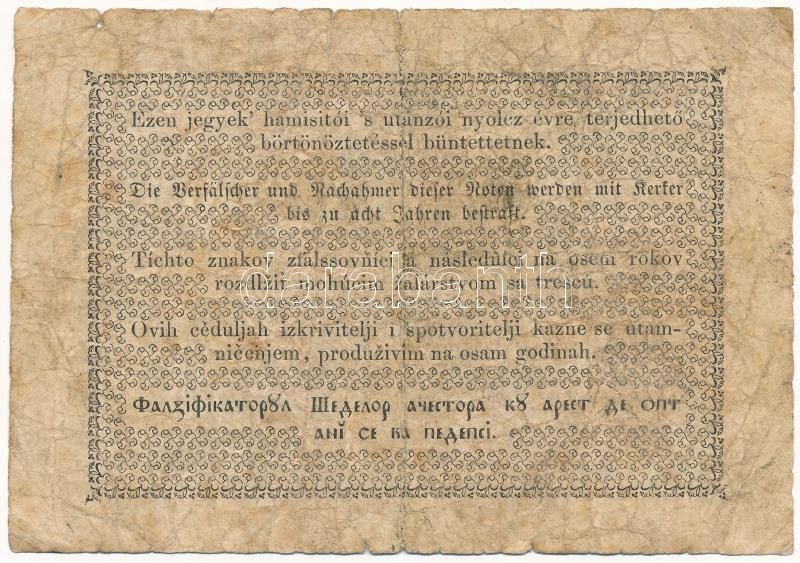 Ezen jegyek' hamisitói 's utánzói nyolcz évre terjedhető
börtönöztetéssel büntettetnek.
Die Verfälscher und Nachahmer dieser Noten werden mit Kerker
bis zu acht Jahren bestraft.
Tíchto znakov zfalssovňíci a následňíci na osem rokov
rozdlžiť mohúcim žalárstvom sa trescú.
darabanth
Ovih cèduljah izkrivitelji i spotvoritelji kazne se utam-
ničenjem, produživim na osam godinah.
Фалзіфікаторꙋл Шеделор ачестора кꙋ арест де опт
анĭ се ва педепсі.